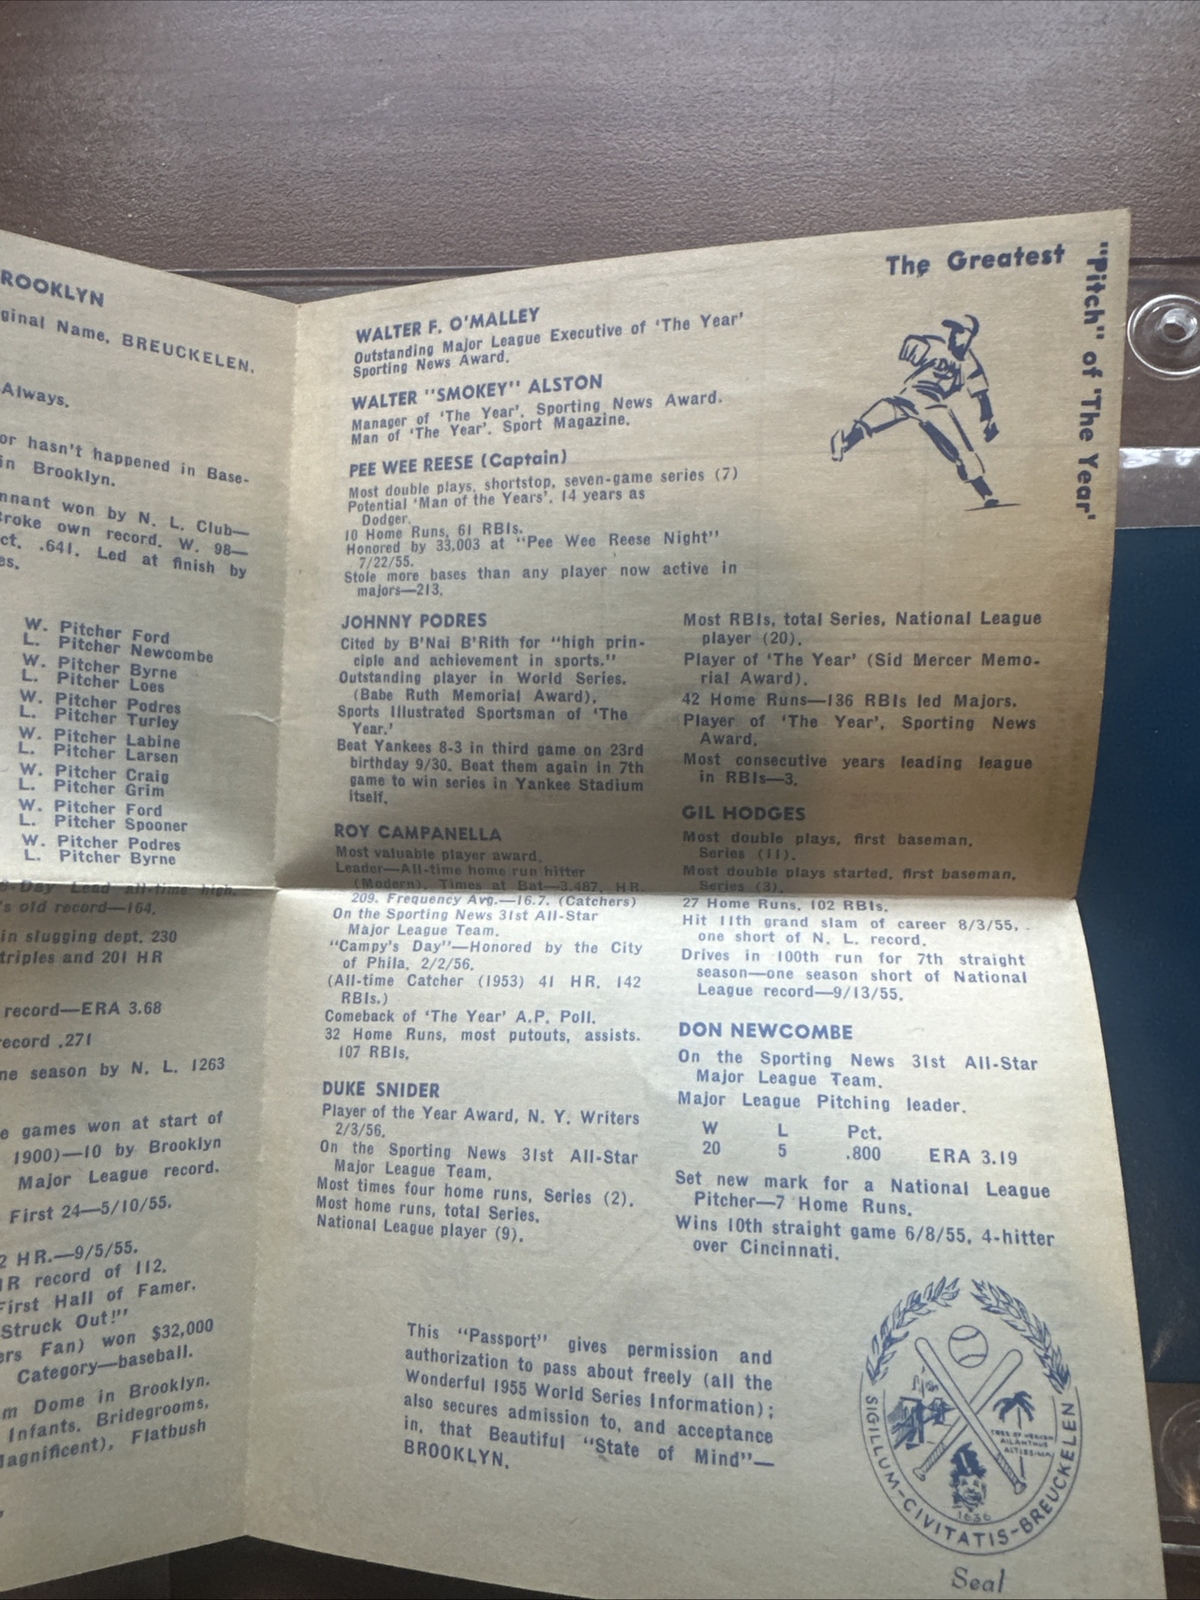 ROOKLYN
ginal Name, BREUCKELEN.
Always.
or hasn't happened in Base-
in Brooklyn.
nnant won by N. L. Club—
roke own record. W. 98—
ct. .641. Led at finish by
es.
W. Pitcher Ford
L. Pitcher Newcombe
W. Pitcher Byrne
L. Pitcher Loes
W. Pitcher Podres
L. Pitcher Turley
W. Pitcher Labine
L. Pitcher Larsen
W. Pitcher Craig
L. Pitcher Grim
W. Pitcher Ford
L. Pitcher Spooner
W. Pitcher Podres
L. Pitcher Byrne
-Day Lead all-time high.
's old record—164.
in slugging dept. 230
triples and 201 HR
record—ERA 3.68
record .271
ne season by N. L. 1263
e games won at start of
1900)—10 by Brooklyn
Major League record.
First 24—5/10/55.
2 HR.—9/5/55.
HR record of 112.
First Hall of Famer.
Struck Out!"
ers Fan) won $32,000
Category—baseball.
m Dome in Brooklyn.
Infants, Bridegrooms,
Magnificent), Flatbush
The Greatest
"Pitch" of 'The Year'
WALTER F. O'MALLEY
Outstanding Major League Executive of 'The Year'
Sporting News Award.
WALTER "SMOKEY" ALSTON
Manager of 'The Year'. Sporting News Award.
Man of 'The Year'. Sport Magazine.
PEE WEE REESE (Captain)
Most double plays, shortstop, seven-game series (7)
Potential 'Man of the Years'. 14 years as
Dodger.
10 Home Runs, 61 RBIs.
Honored by 33,003 at "Pee Wee Reese Night"
7/22/55.
Stole more bases than any player now active in
majors—213.
JOHNNY PODRES
Cited by B'Nai B'Rith for "high prin-
ciple and achievement in sports."
Outstanding player in World Series.
(Babe Ruth Memorial Award).
Sports Illustrated Sportsman of 'The
Year.'
Beat Yankees 8-3 in third game on 23rd
birthday 9/30. Beat them again in 7th
game to win series in Yankee Stadium
itself.
ROY CAMPANELLA
Most valuable player award.
Leader—All-time home run hitter
(Modern). Times at Bat—3,487, HR.
209. Frequency Avg.—16.7. (Catchers)
On the Sporting News 31st All-Star
Major League Team.
"Campy's Day"—Honored by the City
of Phila. 2/2/56.
(All-time Catcher (1953) 41 HR. 142
RBIs.)
Comeback of 'The Year' A.P. Poll.
32 Home Runs, most putouts, assists.
107 RBIs.
DUKE SNIDER
Player of the Year Award, N. Y. Writers
2/3/56.
On the Sporting News 31st All-Star
Major League Team.
Most times four home runs, Series (2).
Most home runs, total Series,
National League player (9).
Most RBIs, total Series, National League
player (20).
Player of 'The Year' (Sid Mercer Memo-
rial Award).
42 Home Runs—136 RBIs led Majors.
Player of 'The Year', Sporting News
Award.
Most consecutive years leading league
in RBIs—3.
GIL HODGES
Most double plays, first baseman,
Series (11).
Most double plays started, first baseman,
Series (3).
27 Home Runs, 102 RBIs.
Hit 11th grand slam of career 8/3/55,
one short of N. L. record.
Drives in 100th run for 7th straight
season—one season short of National
League record—9/13/55.
DON NEWCOMBE
On the Sporting News 31st All-Star
Major League Team.
Major League Pitching leader.
W L Pct.
20 5 .800 ERA 3.19
Set new mark for a National League
Pitcher—7 Home Runs.
Wins 10th straight game 6/8/55, 4-hitter
over Cincinnati.
This "Passport" gives permission and
authorization to pass about freely (all the
Wonderful 1955 World Series Information);
also secures admission to, and acceptance
in, that Beautiful "State of Mind"—
BROOKLYN.
SIGILLUM-CIVITATIS-BREUCKELEN
TREE OF HEAVEN
AILANTHUS
ALTISSIMA
1636
Seal